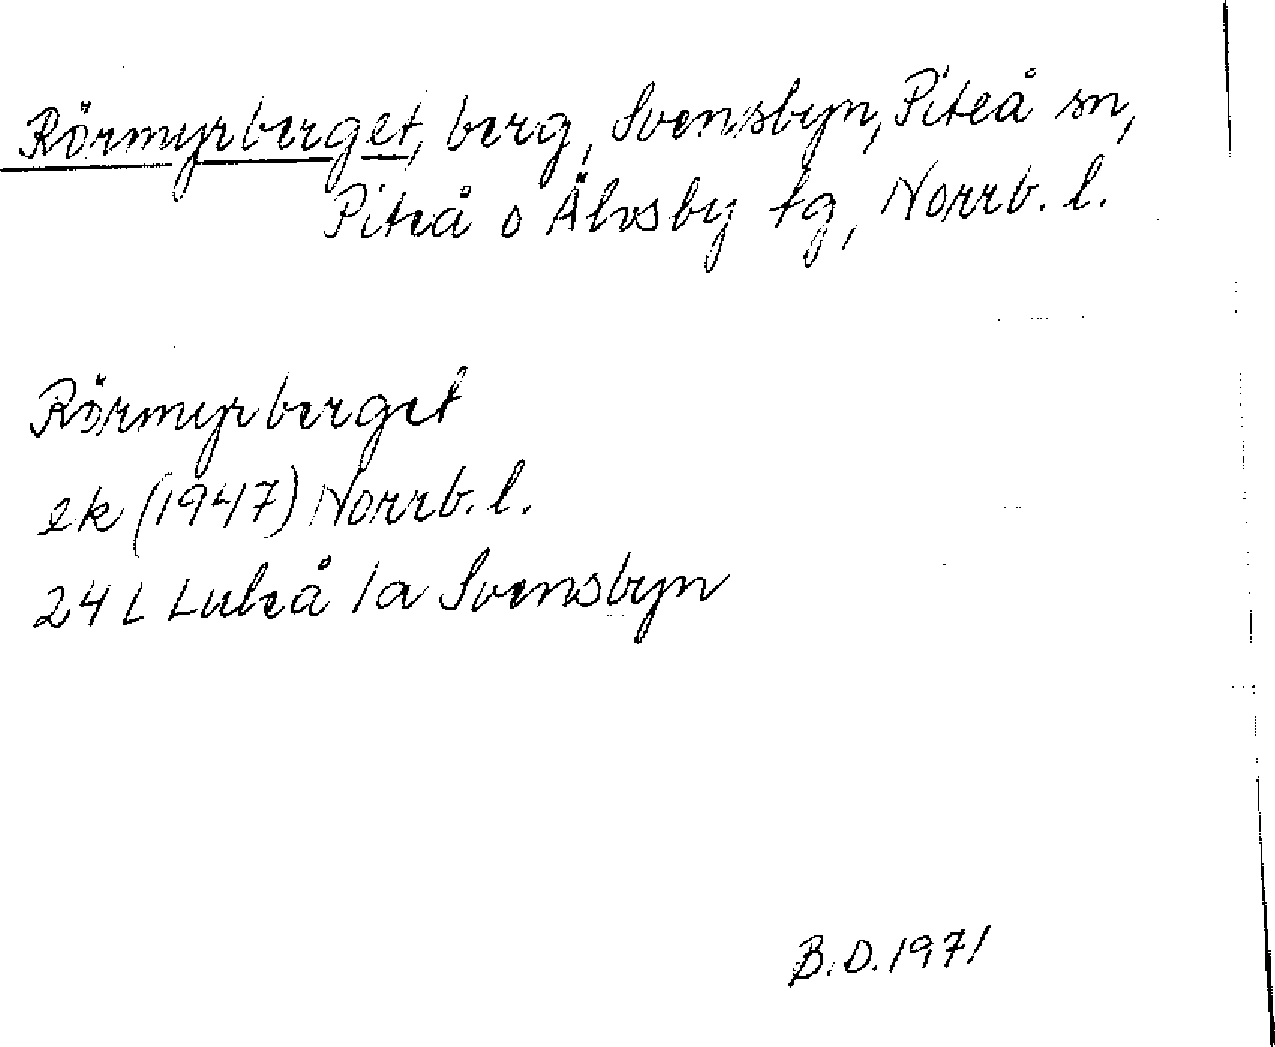 Rörmyrberget, berg, Svensbyn, Piteå sn,
Piteå o Älvsby tg, Norrb. l.
Rörmyrberget
ek (1947) Norrb. l.
24 L Luleå 1a Svensbyn
B.D. 1971